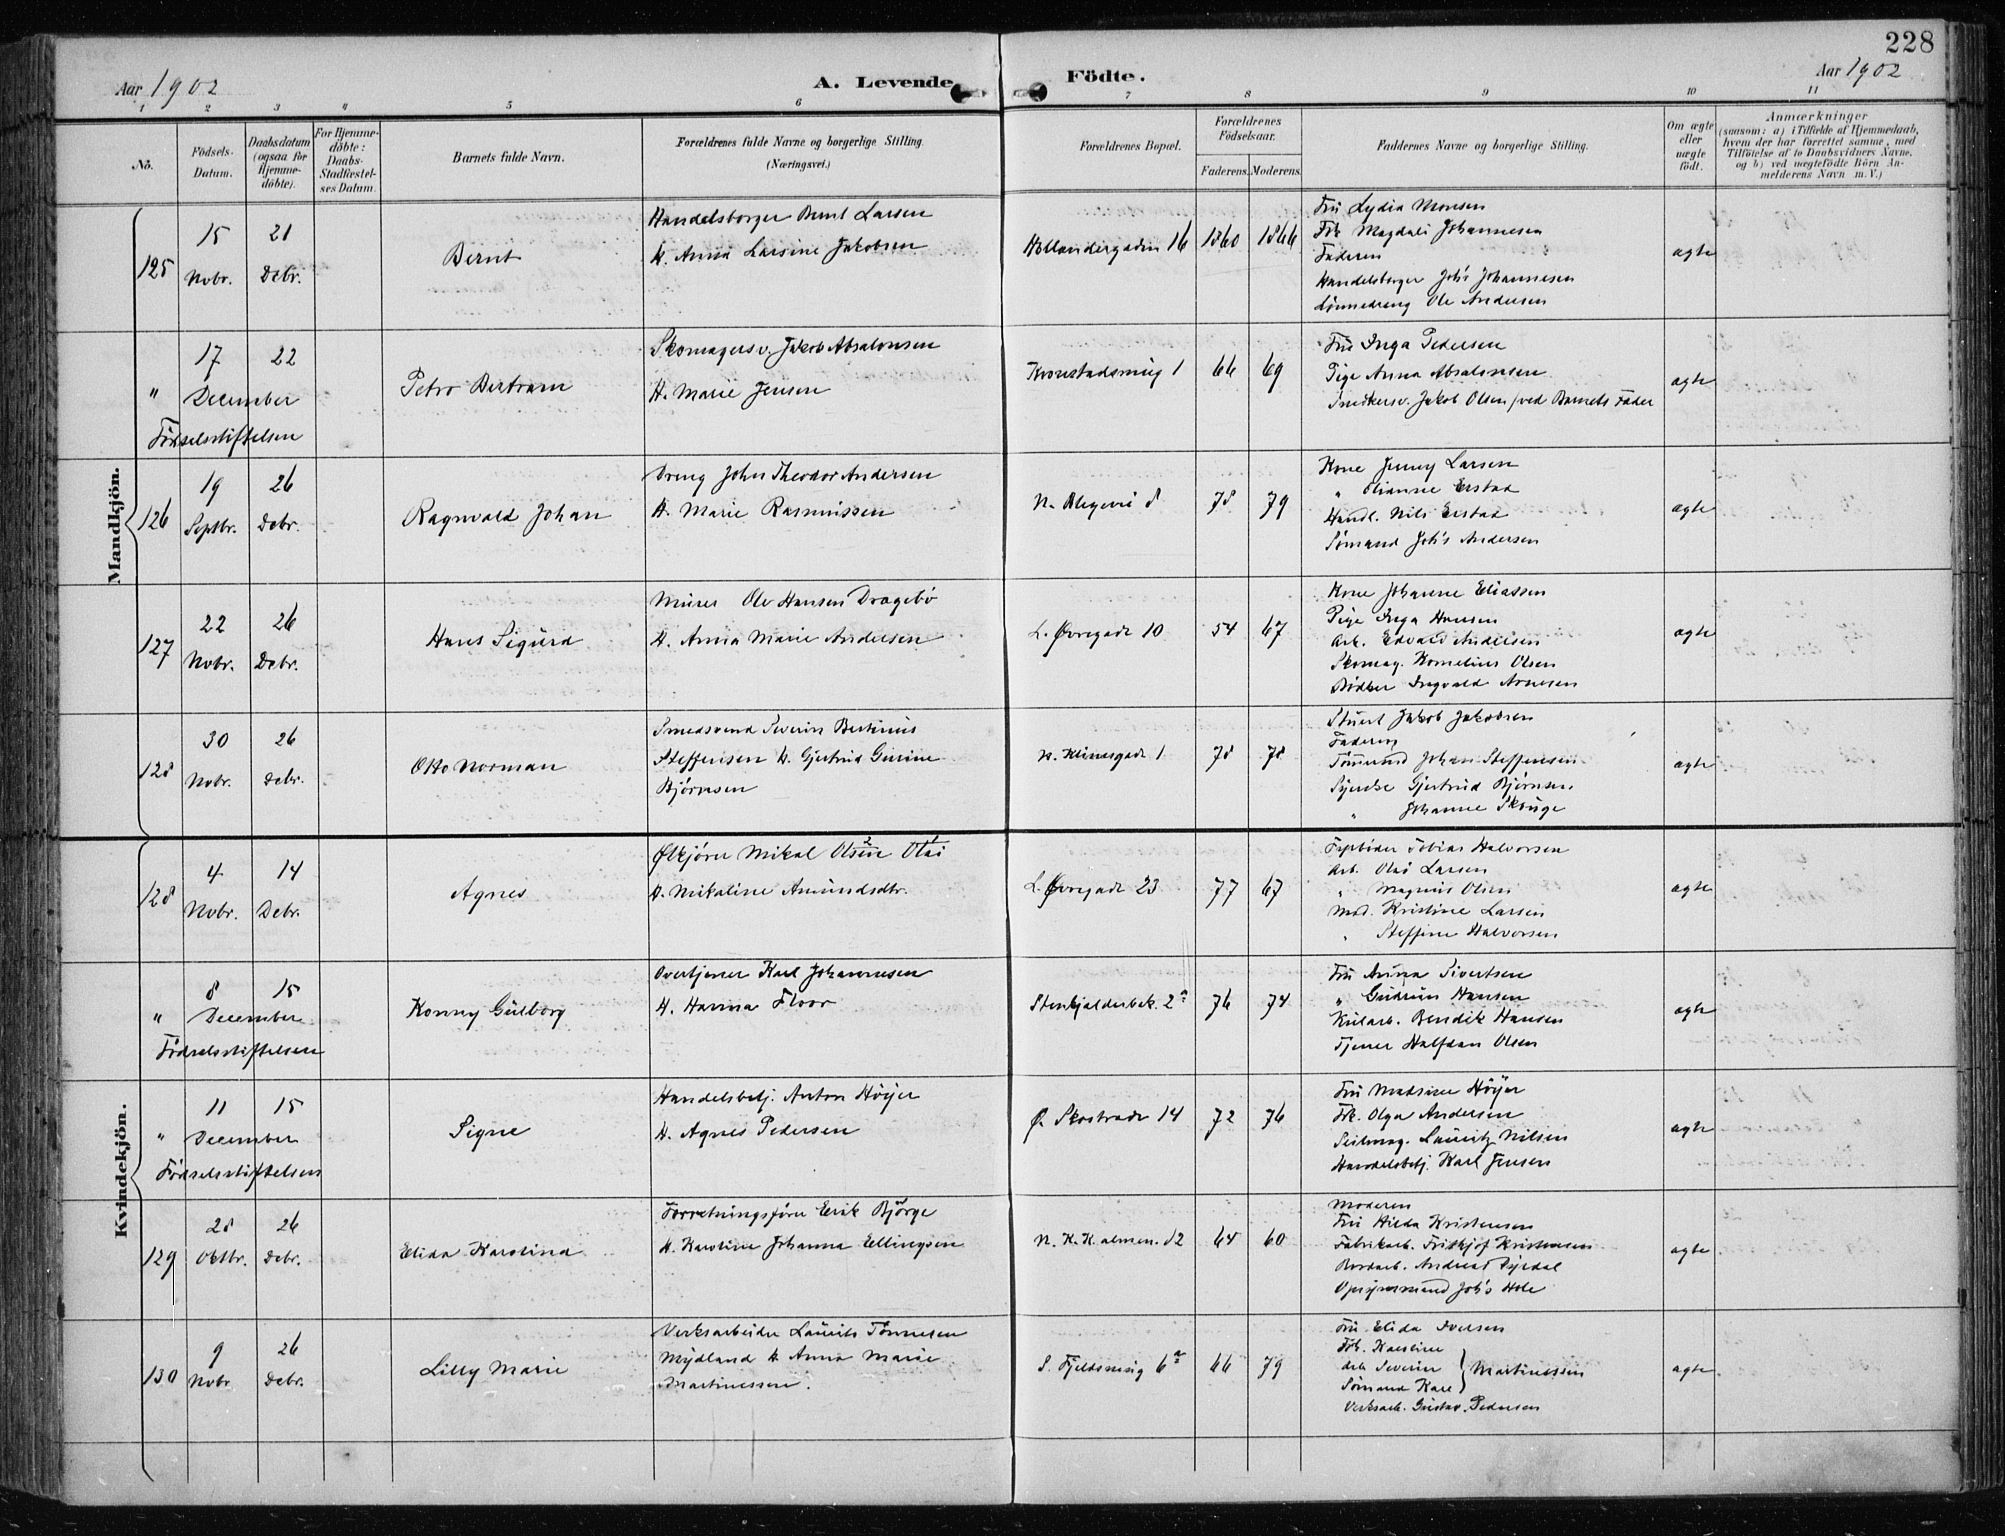 228
Aar 1902
A. Levende Födte.
Aar 1902
1 2 3 " 5 6 7 8 9 10 11
Nö.
Födsels-Datum.
Daabsdatum (ogsaa för Hjemme-döbte).
For Hjemme-döbte: Daabs-Stadfæstel-ses Datum.
Barnets fulde Navn.
Forældrenes fulde Navne og borgerlige Stilling. (Næringsvei.)
Forældrenes Bopæl.
Forældrenes Födselsaar.
Faderens. Moderens.
Faddernes Navne og borgerlige Stilling.
Om ægte eller uægte födt.
Anmærkninger
(saasom: a) i Tilfælde af Hjemmedaab, hvem der har forrettet samme, med Tilföielse af to Daabsvidners Navne. og b) ved uægtefödte Börn An-melderens Navn m. V.)
Mandkjön.
125
15 Nobr.
21 Debr.
Bernt
Handelsborger Bernt Larsen
H. Anna Larsine Jakobsen
Hollændergaden 16
1860 1866
Fru Lydia Monsen
Frk Magdali Johannesen
Faderen
Handelsborger Johs Johannesen
Lønnedreng Ole Andersen
ægte
"
17 22
December
Fødselsstiftelsen
Petro Bertram
Skomagersv. Jakob Absalonsen
H. Marie Jensen
Kronstadsmug 1
66 69
Fru Inga Pedersen
Pige Anna Absalonsen
Snedkersv. Jakob Olsen ved Barnets Fader
ægte
126
19 Septbr.
26 Debr.
Ragnvald Johan
Dreng John Theodor Andersen
H. Marie Rasmussen
N. Blegevei 8
78 79
Kone Jenny Larsen
" Olianne Erstad
Handl. Nils Erstad
Sømand Johs Andersen
ægte
127
22 Nobr.
26 Debr.
Hans Sigurd
Murer Ole Hansen Dragebø
H. Anna Marie Andersen
L. Øvregade 10
54 67
Kone Johanne Eliassen
Pige Inga Hansen
Arb. Edvard Andersen
Skomag. Kornelius Olsen
Bødker Ingvald Arnesen
ægte
128
30 Nobr.
26 Debr.
Otto Norman
Smedsvend Severin Bertinius
Steffensen H. Gjertrud Gurine
Bjørnsen
N. Klinesgade 1
78 78
Stuert Jakob Jakobsen
Faderen
Tømmermd Johan Steffensen
Syerske Gjertrud Bjørnsen
" Johanne Skauge
ægte
Kvindekjön.
128
4 Nobr.
14 Debr.
Agnes
Ølkjører Mikal Olsen Olai
H. Mikaline Amundsdtr.
L. Øvregade 23
77 67
Fyrbøder Tobias Halvorsen
Arb. Olai Larsen
" Magnus Olsen
Mad. Kristine Larsen
" Steffine Halvorsen
ægte
"
8 15
December
Fødselsstiftelsen
Konny Gulborg
Overtjener Karl Johannesen
H. Hanna Floor
Stenkjælderbak. 2a
76 74
Fru Anna Sivertsen
" Gudrun Hansen
Kularb. Bendik Hansen
Tjener Halfdan Olsen
ægte
"
11 15
December
Fødselsstiftelsen
Signe
Handelsbetj. Anton Höyer
H. Agnes Pedersen
Ø. Skostræde 14
72 76
Fru Madsine Höyer
Frk. Olga Andersen
Seilmag. Lauritz Nilsen
Handelsbetj. Karl Jensen
ægte
129
28 Oktbr.
26 Debr.
Elida Karolina
Forretningsfører Erik Bjørge
H. Karoline Johanna Ellingsen
N. K. K. almen. 12
64 60
Moderen
Fru Hilda Kristensen
Fabrikarb. Fritkjof Kristensen
Andreas
Opsynsmand Johs Hole
ægte
130
9 Nobr
26 Debr.
Lilly Marie
Verksarbeider Laurits Tønnesen
Mydland H. Anna Marie
Martinessen.
S. Fjeldsmug 6a
66 79
Fru Elida Iversen
Frk. Karoline
Arb. Severin } Martinessen
Sømand Karl
Verksarb. Gustav Pedersen
ægte